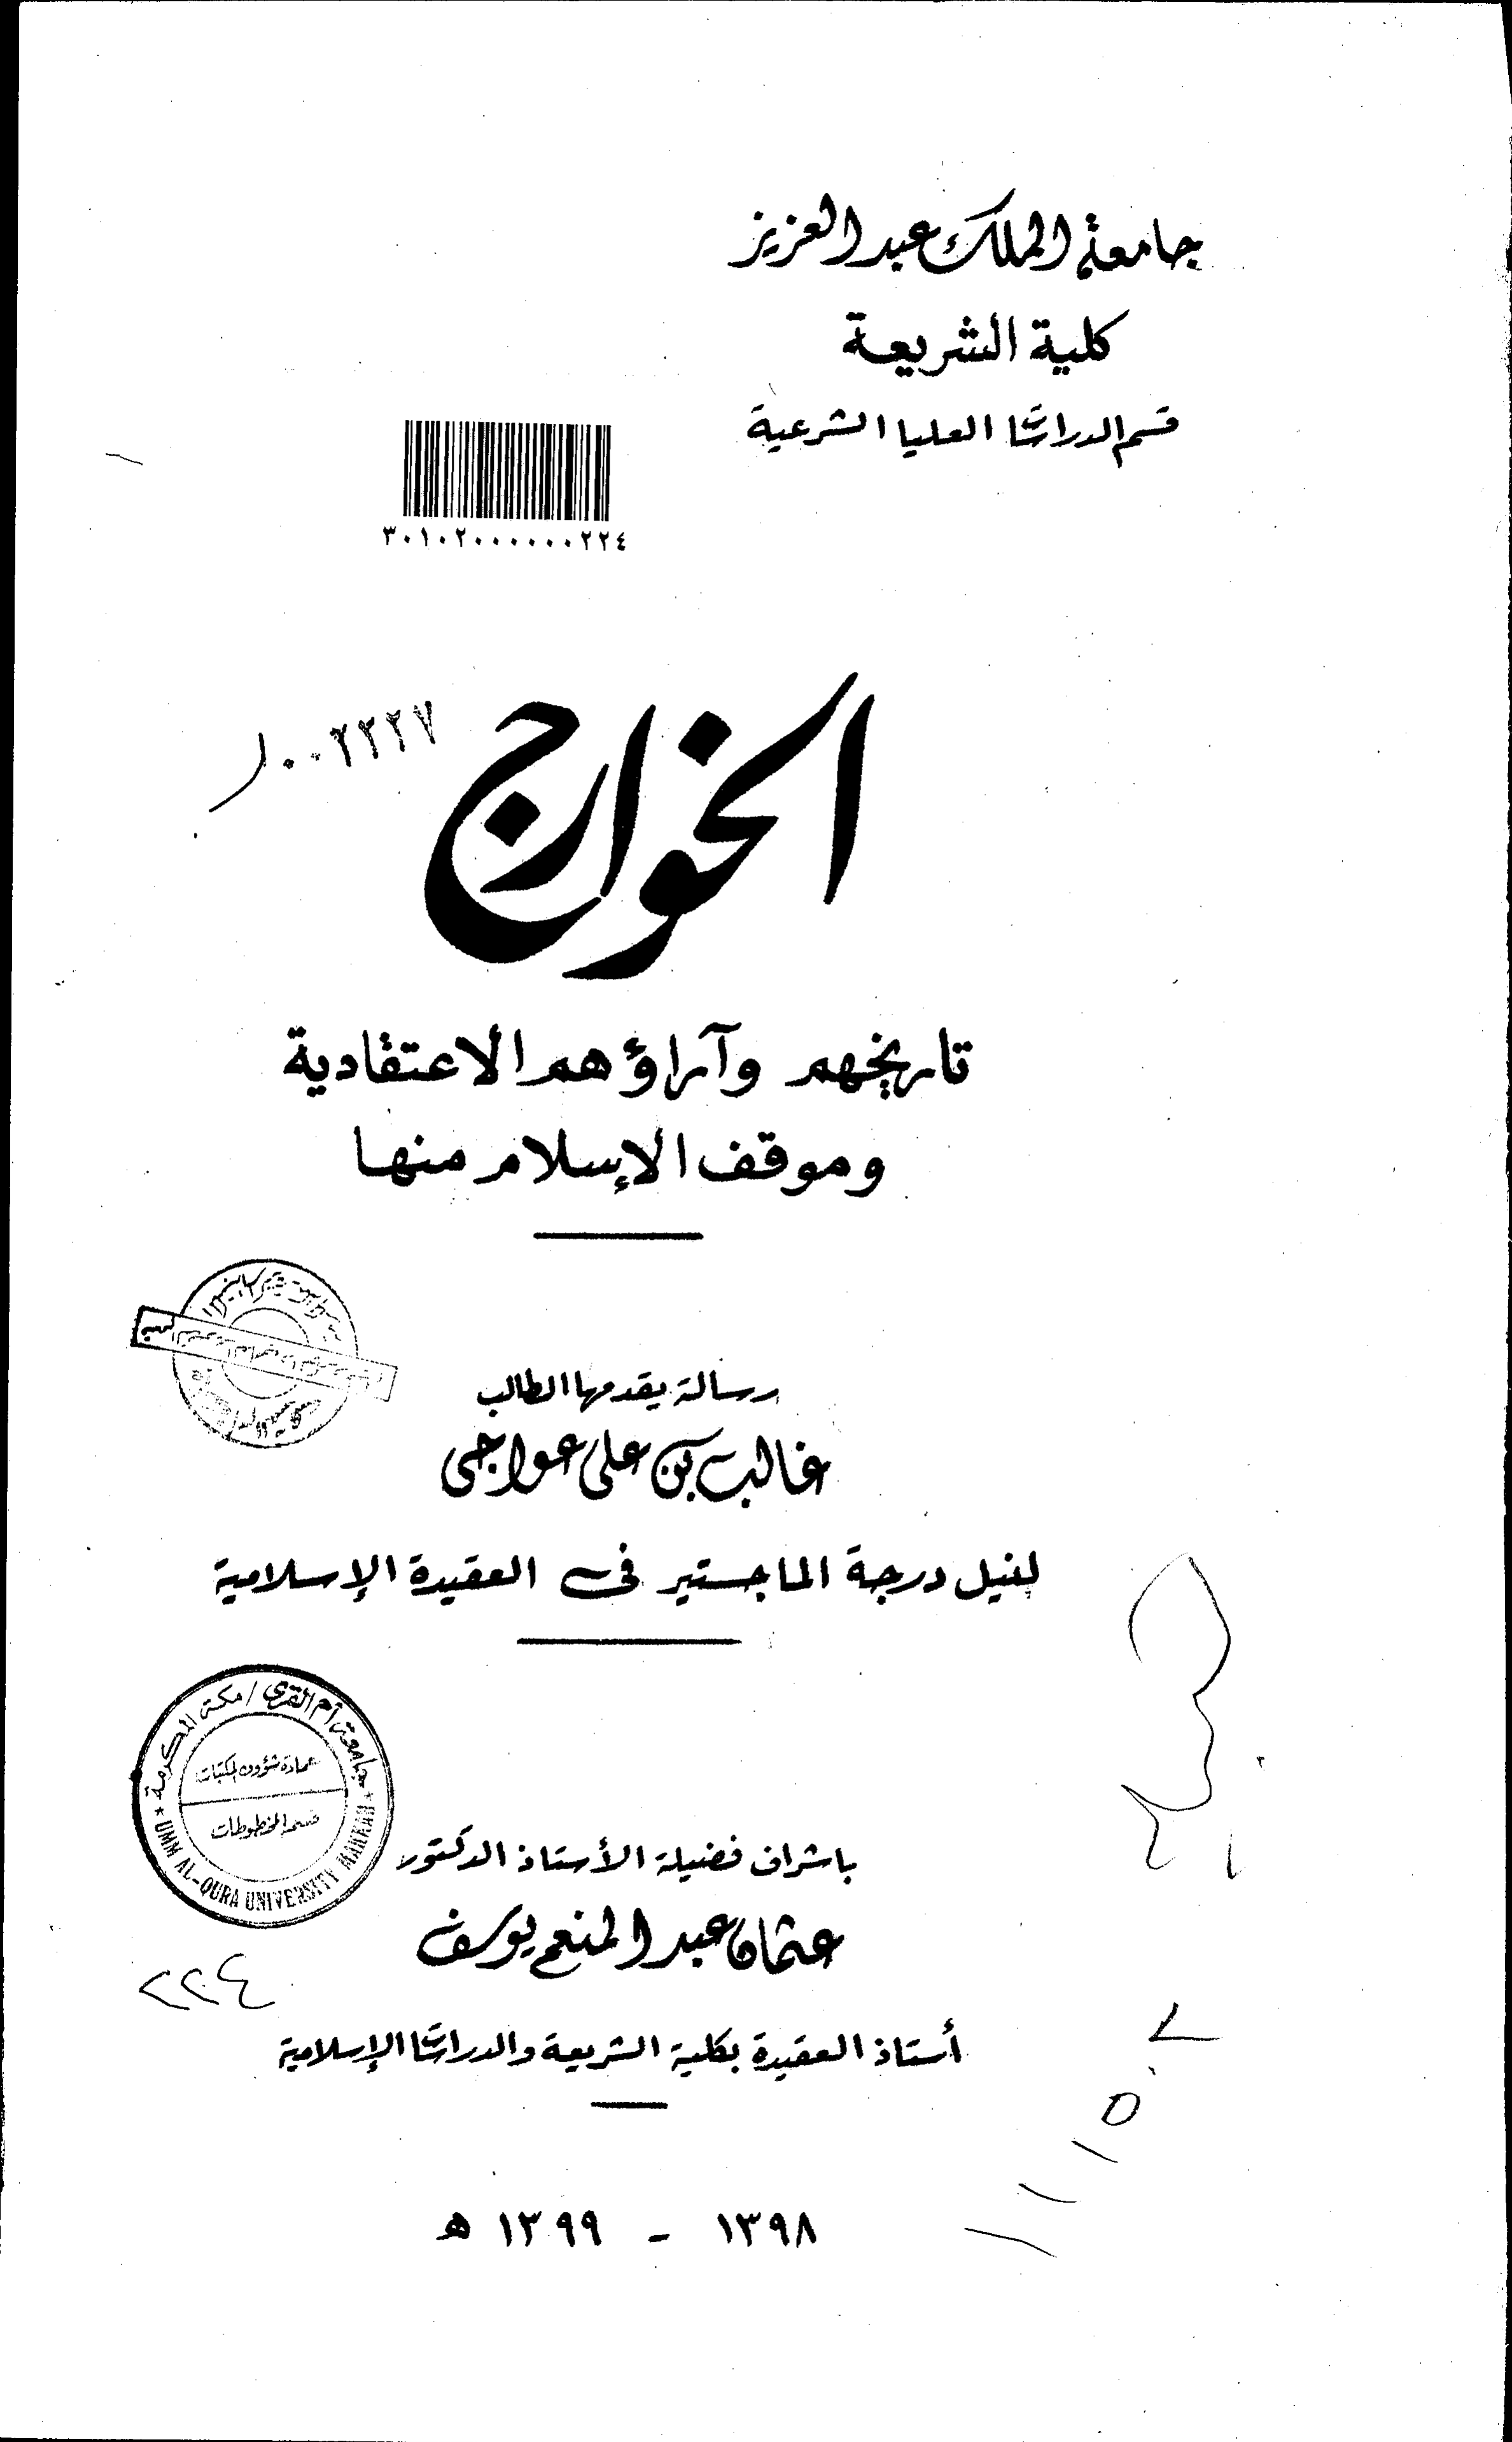 جامعة الملك عبد العزيز
كلية الشريعة
قسم الدراسات العليا الشرعية
٣٠١٠٢٠٠٠٠٠٠٢٢٤
٠٠٢٢٢٧
الخوارج
تاريخهم وآراؤهم الاعتقادية
وموقف الإسلام منها
رسالة يقدمها الطالب
غالب بن على عواجى
لنيل درجة الماجستير فى العقيدة الإسلامية
جامعة أم القرى / مكة المكرمة
عمادة شؤون المكتبات
قسم المخطوطات
UMM AL-QURA UNIVERSITY MAKKAH
باشراف فضيلة الأستاذ الدكتور
عثمان عبد المنعم يوسف
٢٢٤
أستاذ العقيدة بكلية الشريعة والدراسات الإسلامية
١٣٩٨ - ١٣٩٩ هـ